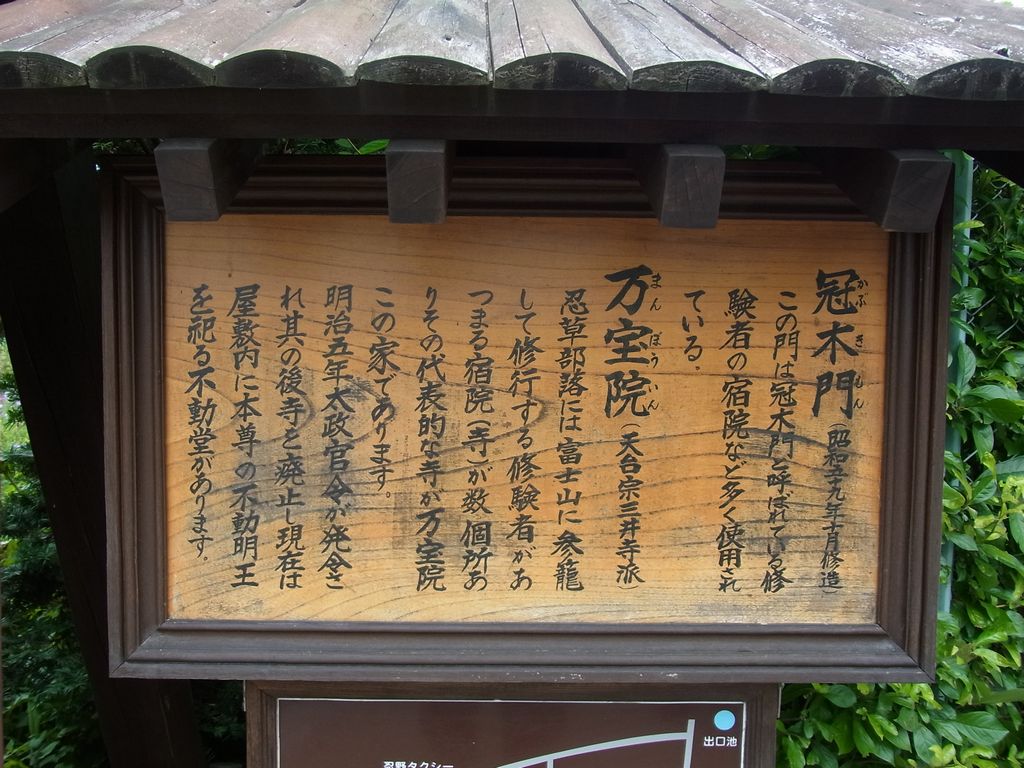 冠木門（昭和五十九年十月修造）
かぶきもん
この門は冠木門と呼ばれている修
験者の宿院など多く使用され
ている。
万宝院（天台宗三井寺派）
まんぽういん
忍草部落には富士山に参籠
して修行する修験者があ
つまる宿院（寺）が数個所あ
りその代表的な寺が万宝院
この家であります。
明治五年太政官令が発令さ
れ其の後寺を廃止し現在は
屋敷内に本尊の不動明王
を祀る不動堂があります。
出口池
忍野タクシー